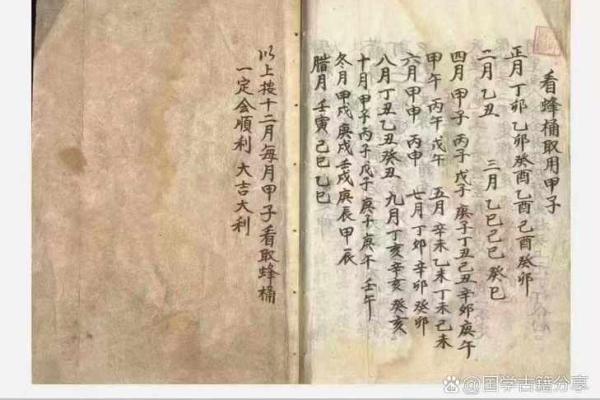 看蜂桶取用甲子
正月 丁卯 乙卯 癸酉 乙酉 己酉 癸卯
二月 乙丑 三月 乙巳 己巳 癸巳
四月 甲子 丙子 戊子 庚子 丁丑 己丑 辛卯 庚午
甲午 丙午 戊午 五月 辛未 乙未 丁未 己未
六月 甲申 丙申 七月 丁卯 辛卯 癸卯
八月 丁丑 乙丑 癸丑 九月 丁亥 辛亥 癸亥
十月 甲子 丙子 戊子 庚子 庚午 壬午
冬月 甲戌 庚戌 壬戌 庚辰 甲辰
腊月 壬寅 己巳 乙巳
以上按十二月每月甲子看取蜂桶
一定会順利 大吉大利
@国学古籍分享